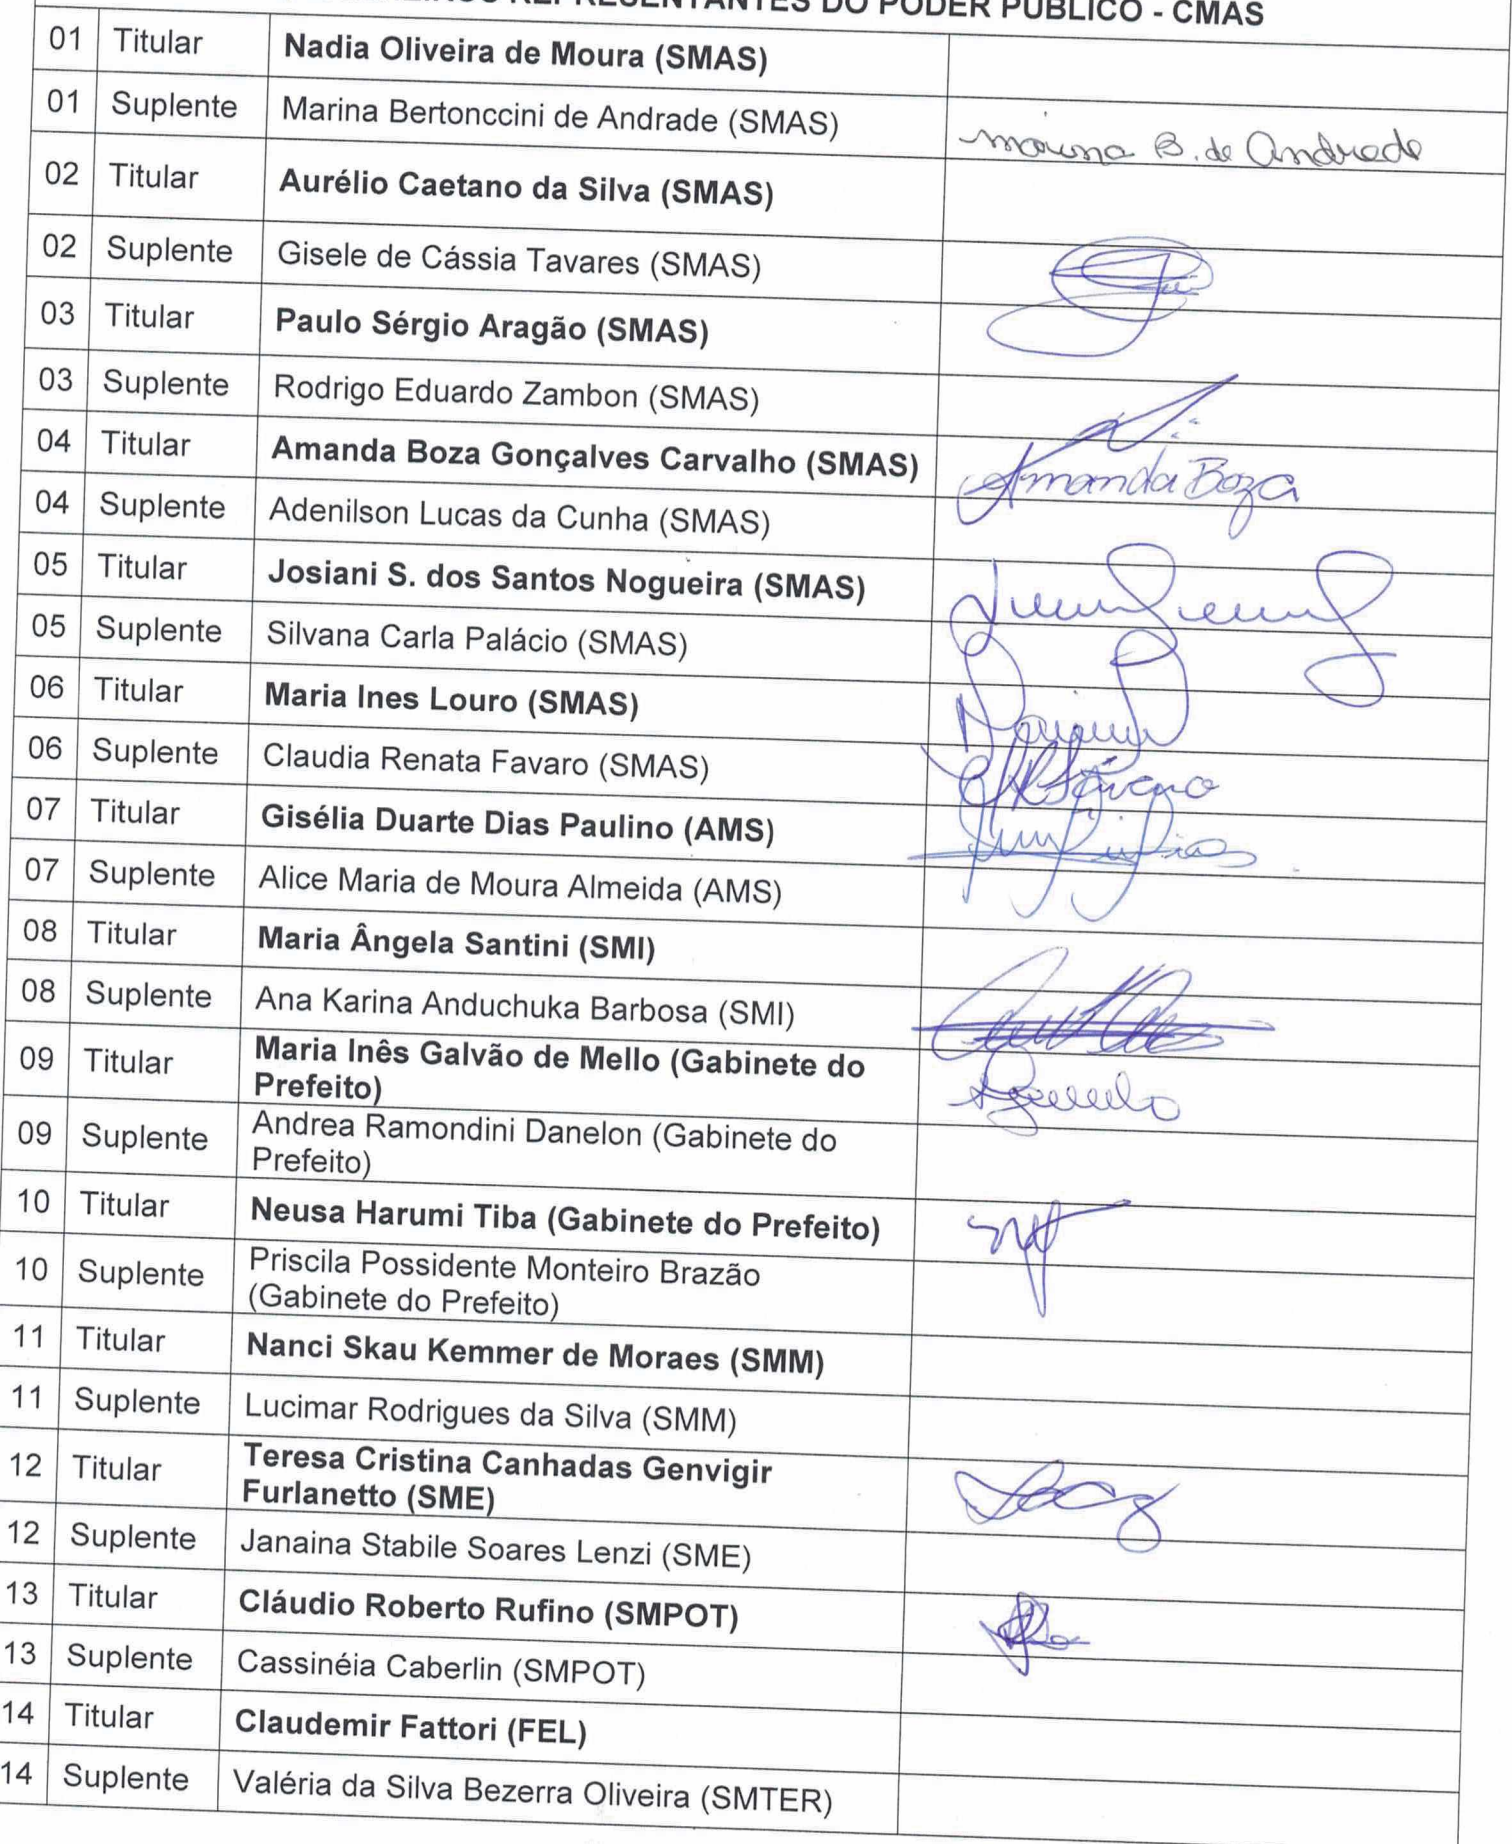 REPRESENTANTES DO PODER PÚBLICO - CMAS
01 Titular Nadia Oliveira de Moura (SMAS)
01 Suplente Marina Bertonccini de Andrade (SMAS) Marina B. de Andrade
02 Titular Aurélio Caetano da Silva (SMAS)
02 Suplente Gisele de Cássia Tavares (SMAS)
03 Titular Paulo Sérgio Aragão (SMAS)
03 Suplente Rodrigo Eduardo Zambon (SMAS)
04 Titular Amanda Boza Gonçalves Carvalho (SMAS) Amanda Boza
04 Suplente Adenilson Lucas da Cunha (SMAS)
05 Titular Josiani S. dos Santos Nogueira (SMAS)
05 Suplente Silvana Carla Palácio (SMAS)
06 Titular Maria Ines Louro (SMAS)
06 Suplente Claudia Renata Favaro (SMAS)
07 Titular Gisélia Duarte Dias Paulino (AMS)
07 Suplente Alice Maria de Moura Almeida (AMS)
08 Titular Maria Ângela Santini (SMI)
08 Suplente Ana Karina Anduchuka Barbosa (SMI)
09 Titular Maria Inês Galvão de Mello (Gabinete do
Prefeito)
09 Suplente Andrea Ramondini Danelon (Gabinete do
Prefeito)
10 Titular Neusa Harumi Tiba (Gabinete do Prefeito)
10 Suplente Priscila Possidente Monteiro Brazão
(Gabinete do Prefeito)
11 Titular Nanci Skau Kemmer de Moraes (SMM)
11 Suplente Lucimar Rodrigues da Silva (SMM)
12 Titular Teresa Cristina Canhadas Genvigir
Furlanetto (SME)
12 Suplente Janaina Stabile Soares Lenzi (SME)
13 Titular Cláudio Roberto Rufino (SMPOT)
13 Suplente Cassinéia Caberlin (SMPOT)
14 Titular Claudemir Fattori (FEL)
14 Suplente Valéria da Silva Bezerra Oliveira (SMTER)